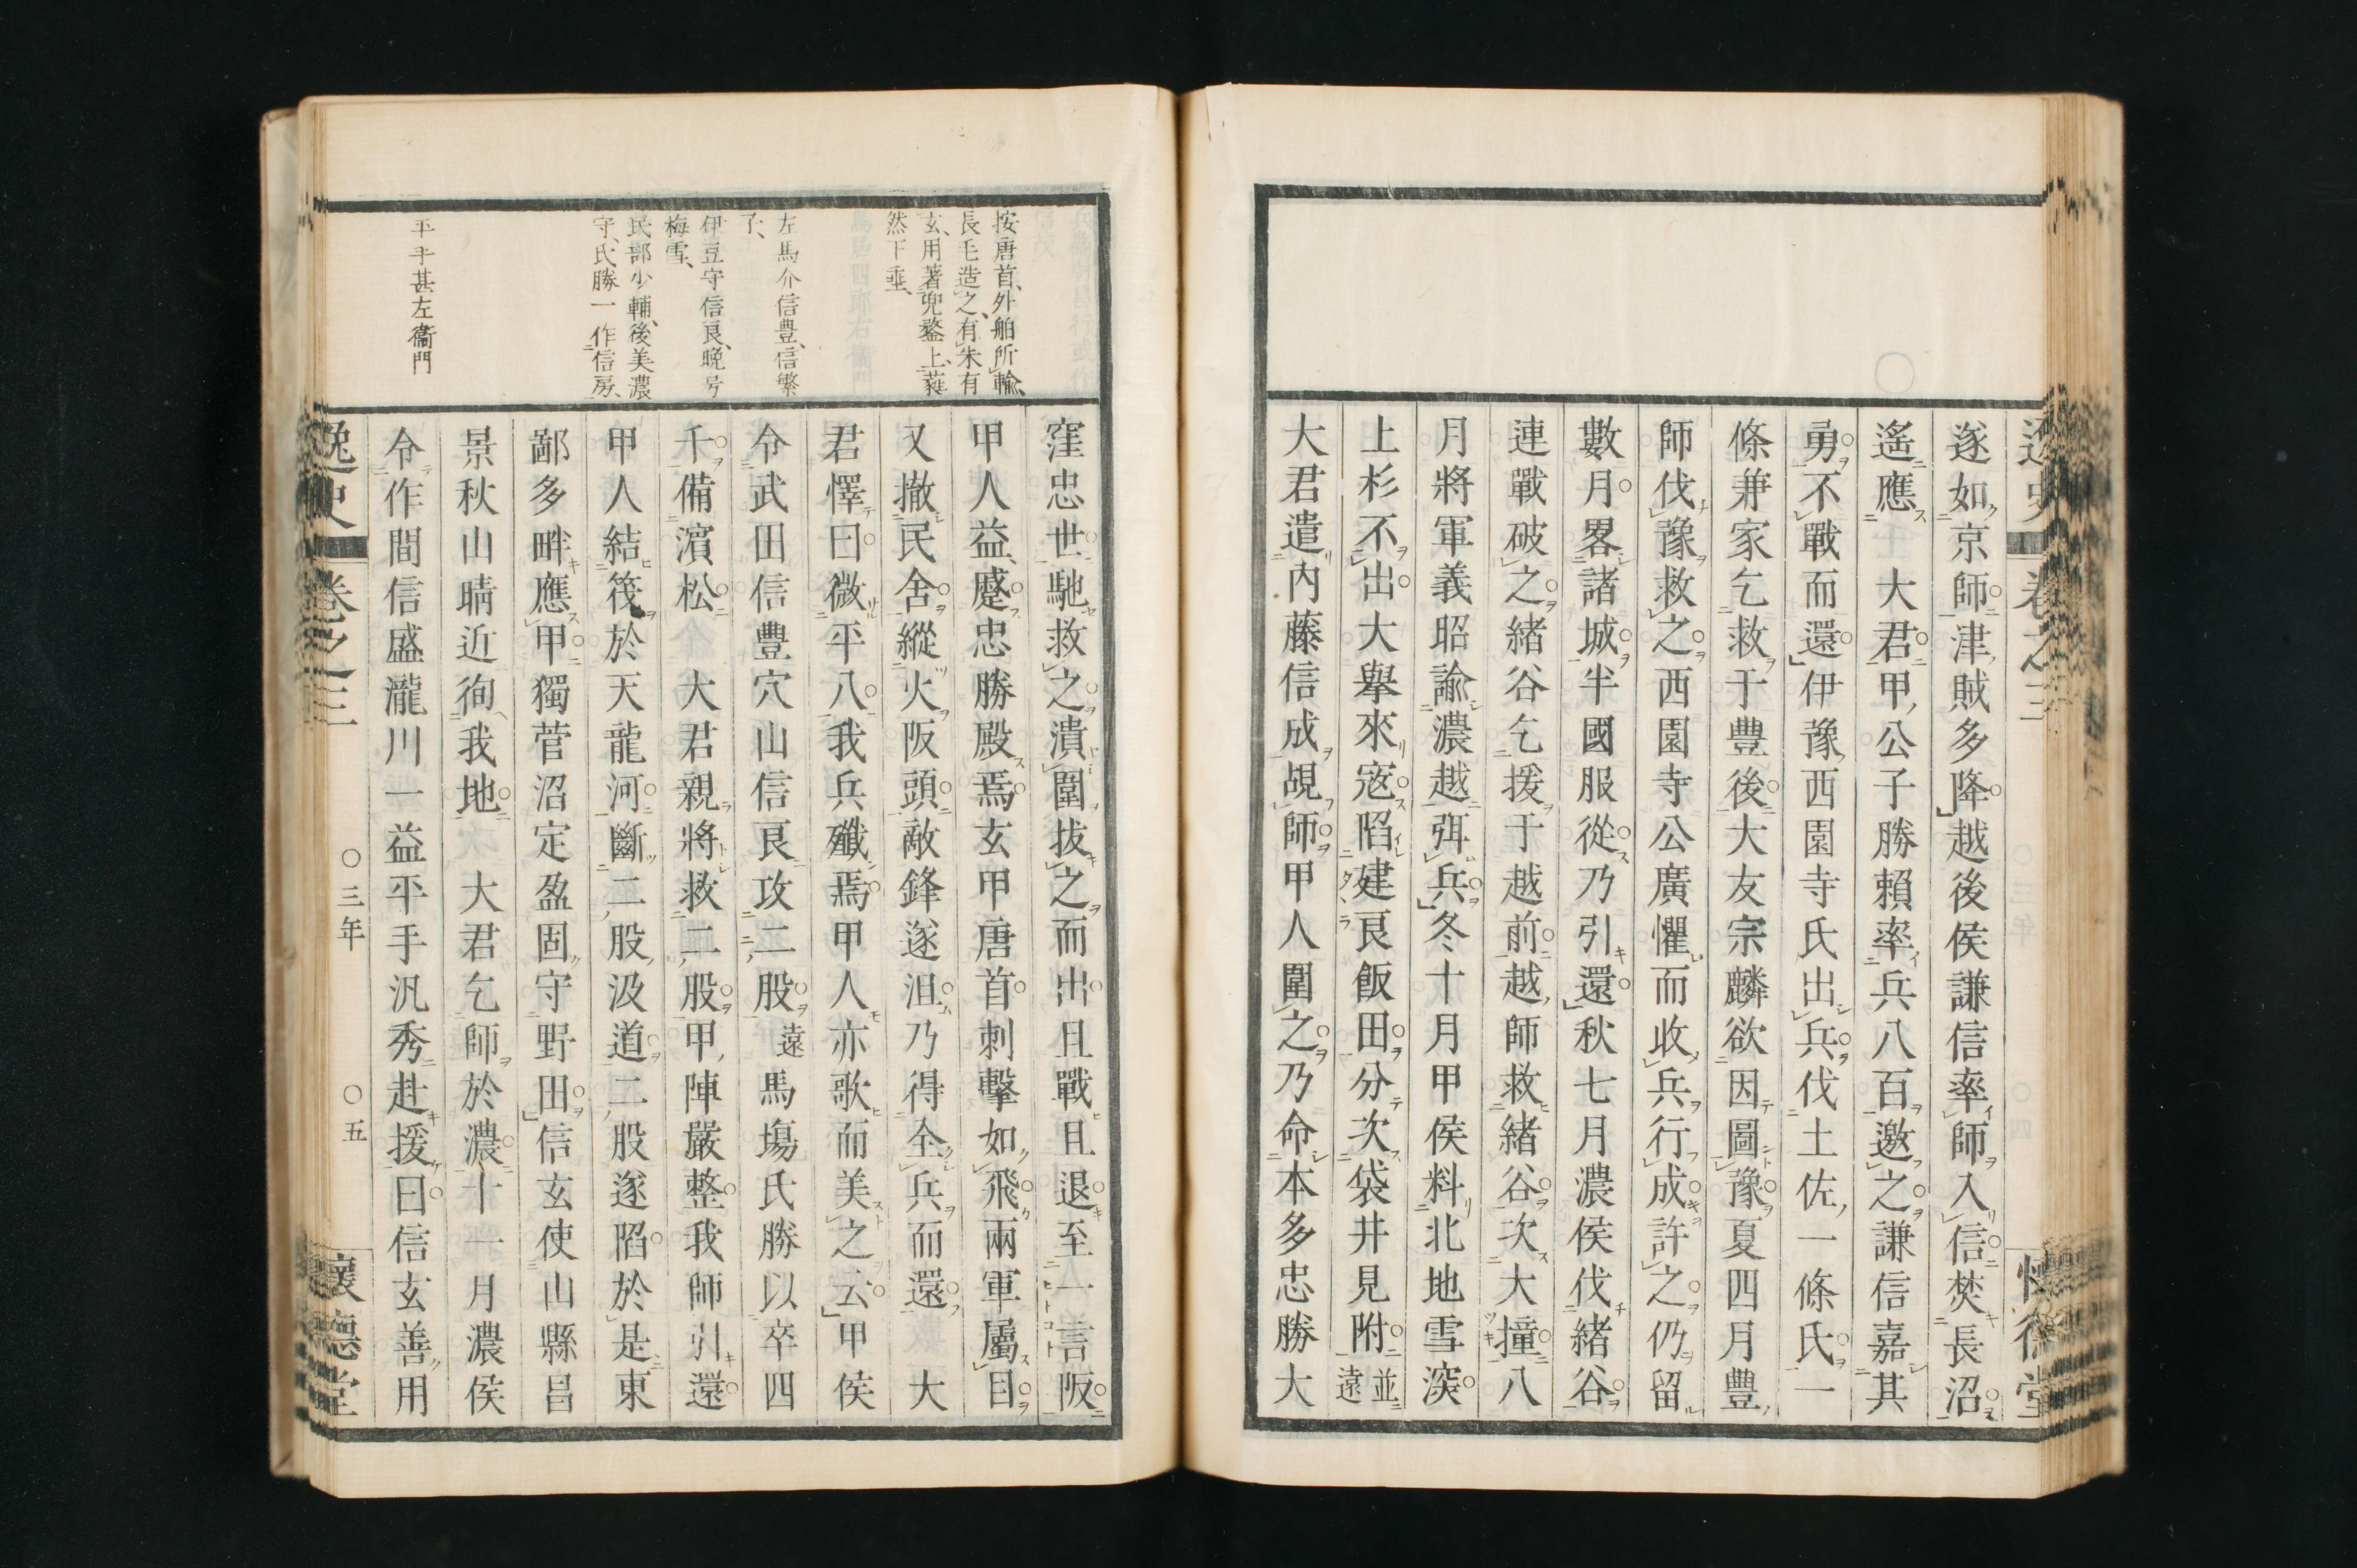 逸史 卷之三 懷德堂
遂如京師津賊多降越後侯謙信率師入信焚長沼
遙應 大君甲公子勝賴率兵八百邀之謙信嘉其
勇不戰而還伊豫西園寺氏出兵伐土佐一條氏一
條兼家乞救于豐後大友宗麟欲因圖豫夏四月豐
師伐豫救之西園寺公廣懼而收兵行成許之仍留
數月畧諸城半國服從乃引還秋七月濃侯伐緒谷
連戰破之緒谷乞援于越前越師救緒谷次大撞八
月將軍義昭諭濃越弭兵冬十月甲侯料北地雪深
上杉不出大舉來寇陷建良飯田分次袋井見附並遠
大君遣內藤信成覘師甲人圍之乃命本多忠勝大
窪忠世馳救之潰圍拔之而出且戰且退至一言阪
甲人益蹙忠勝殿焉玄甲唐首刺擊如飛兩軍屬目
又撤民舍縱火阪頭敵鋒遂沮乃得全兵而還 大
君懌曰微平八我兵殲焉甲人亦歌而美之云甲侯
令武田信豐穴山信良攻二股遠馬場氏勝以卒四
千備濱松 大君親將救二股甲陣嚴整我師引還
甲人結筏於天龍河斷二股汲道二股遂陷於是東
鄙多畔應甲獨菅沼定盈固守野田信玄使山縣昌
景秋山晴近徇我地 大君乞師於濃十一月濃侯
令作間信盛瀧川一益平手汎秀赴援曰信玄善用
按唐首外舶所輸
長毛造之有朱有
玄用著兜鍪上蕤
然下垂
左馬介信豊信繁
了
伊豆守信良晩号
梅雪
民部少輔後美濃
守氏勝一作信房
平手甚左衞門
逸史 卷之三 〇三年 〇五 懷德堂